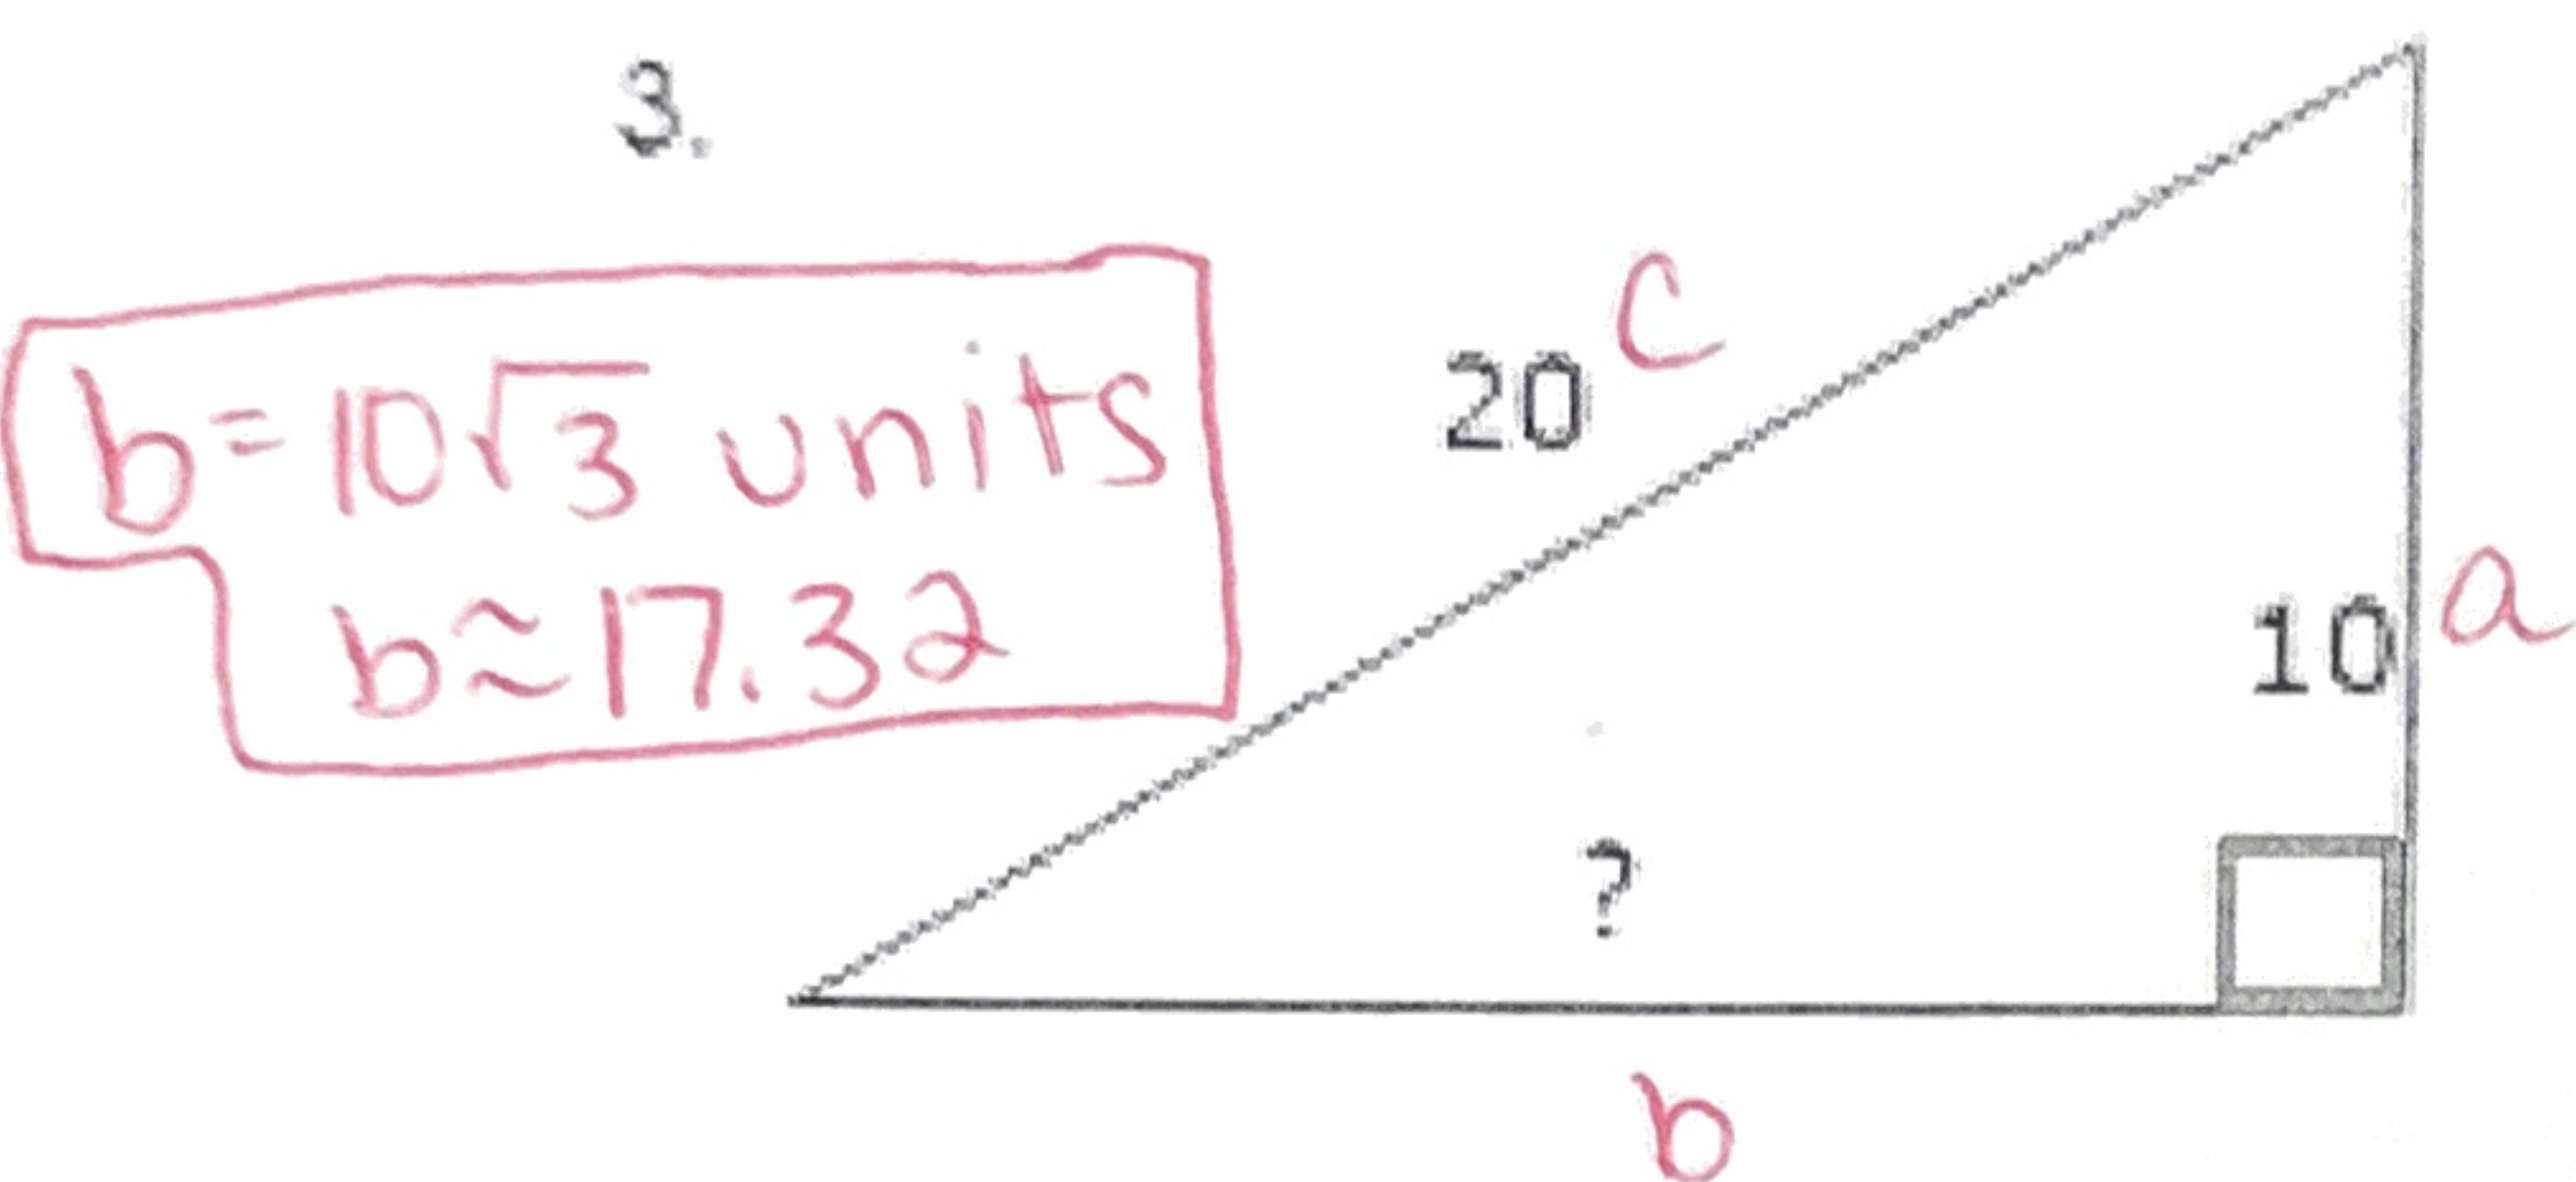 3.
b = 10√3 units
b ≈ 17.32
20 c
10 a
?
b